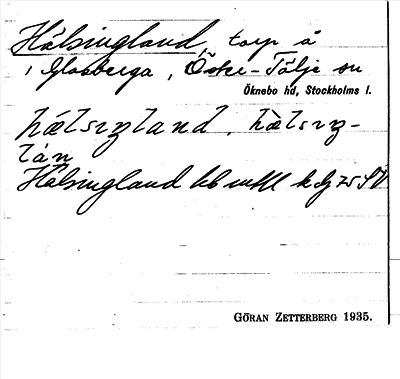 Hälsingland, torp å
i Glasberga, Öster-Tälje sn
Öknebo hd, Stockholms l.
hælsıŋland, hælsıŋ-
lán
Hälsingland
GÖRAN ZETTERBERG 1935.